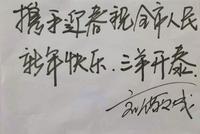 携手迎春祝全市人民
新年快乐.三羊开泰.